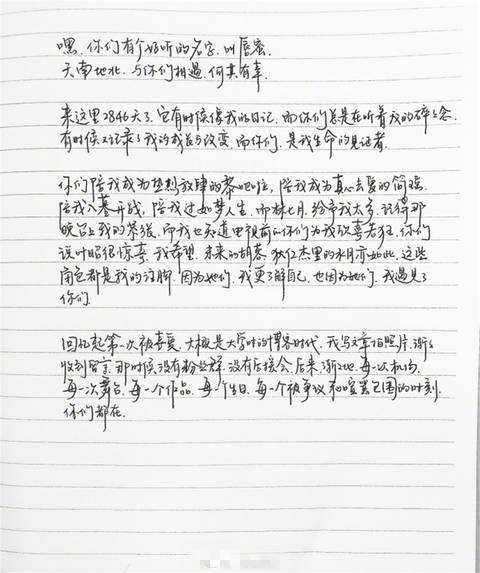 嘿，你们有个好听的名字，叫唇蜜。
天南地北，与你们相遇，何其有幸。
来这里2846天了，它有时候像我的日记，而你们总是在听着我的碎碎念。
有时候又记录了我的成长与改变，而你们，是我生命的见证者。
你们陪我成为热烈放肆的黎吧啦，陪我成为真心去爱的简瑶。
陪我入暮开战，陪我过如梦人生，而林七月，给予我太多，记得那
晚台上我的紧张，而我也知道电视前的你们为我欣喜若狂，你们
说叶昭很惊喜，我希望，未来的胡蓉，狄仁杰里的水月亦如此，这些
角色都是我的注脚，因为她们，我更了解自己，也因为她们，我遇见了
你们。
回忆起第一次被喜爱，大概是大学时的博客时代，我写文章拍照片，渐渐
收到留言，那时候没有粉丝群，没有后援会，后来，渐渐地，每一次机场，
每一次舞台，每一个作品，每一个生日，每一个被争议和喧嚣包围的时刻，
你们都在。